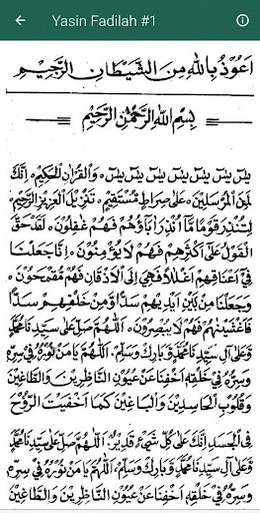 Yasin Fadilah #1
اَعُوْذُ بِاللهِ مِنَ الشَّيْطَانِ الرَّجِيْمِ
بِسْمِ اللهِ الرَّحْمٰنِ الرَّحِيْمِ
يسٓ يسٓ يسٓ يسٓ يسٓ يسٓ يسٓ ۰ وَالْقُرْاٰنِ الْحَكِيْمِ ۰ اِنَّكَ
لَمِنَ الْمُرْسَلِيْنَ ۰ عَلٰى صِرَاطٍ مُسْتَقِيْمٍ ۰ تَنْزِيْلَ الْعَزِيْزِ الرَّحِيْمِ ۰
لِتُنْذِرَ قَوْمًا مَّآ اُنْذِرَ اٰبَآؤُهُمْ فَهُمْ غٰفِلُوْنَ ۰ لَقَدْ حَقَّ
الْقَوْلُ عَلٰٓى اَكْثَرِهِمْ فَهُمْ لَا يُؤْمِنُوْنَ ۰ اِنَّا جَعَلْنَا
فِيْٓ اَعْنَاقِهِمْ اَغْلٰلًا فَهِيَ اِلَى الْاَذْقَانِ فَهُمْ مُقْمَحُوْنَ ۰
وَجَعَلْنَا مِنْ بَيْنِ اَيْدِيْهِمْ سَدًّا وَّمِنْ خَلْفِهِمْ سَدًّا
فَاَغْشَيْنٰهُمْ فَهُمْ لَا يُبْصِرُوْنَ ۰ اَللّٰهُمَّ صَلِّ عَلٰى سَيِّدِنَا مُحَمَّدٍ
وَعَلٰى اٰلِ سَيِّدِنَا مُحَمَّدٍ وَبَارِكْ وَسَلِّمْ. اَللّٰهُمَّ يَا مَنْ نُوْرُهٗ فِيْ سِرِّهٖ
وَسِرُّهٗ فِيْ خَلْقِهٖ اَخْفِنَا عَنْ عُيُوْنِ النَّاظِرِيْنَ وَالطَّاغِيْنَ
وَقُلُوْبِ الْحَاسِدِيْنَ وَالْبَاغِيْنَ كَمَا اَخْفَيْتَ الرُّوْحَ
فِي الْجَسَدِ اِنَّكَ عَلٰى كُلِّ شَيْءٍ قَدِيْرٌ. اَللّٰهُمَّ صَلِّ عَلٰى سَيِّدِنَا مُحَمَّدٍ
وَعَلٰى اٰلِ سَيِّدِنَا مُحَمَّدٍ وَبَارِكْ وَسَلِّمْ. اَللّٰهُمَّ يَا مَنْ نُوْرُهٗ فِيْ سِرِّهٖ
وَسِرُّهٗ فِيْ خَلْقِهٖ اَخْفِنَا عَنْ عُيُوْنِ النَّاظِرِيْنَ وَالطَّاغِيْنَ